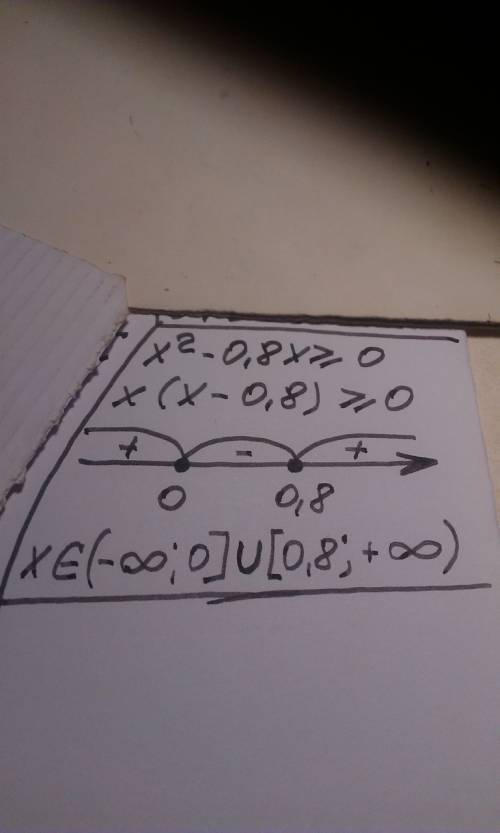 x² - 0,8x ⩾ 0
x (x - 0,8) ⩾ 0
+ - +
0 0,8
x∈(-∞; 0]∪[0,8; +∞)